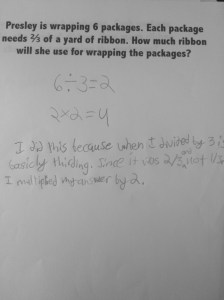 Presley is wrapping 6 packages. Each package
needs ⅔ of a yard of ribbon. How much ribbon
will she use for wrapping the packages?
6÷3=2
2×2=4
I did this because when I divited by 3 is
basicly thirding. Since it was 2/3 and not 1/3
I multiplied my answer by 2.